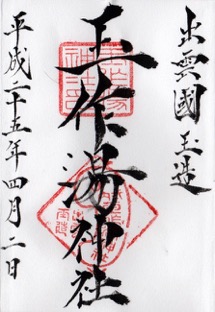 出雲國玉造
玉作湯神社
平成二十五年四月二日